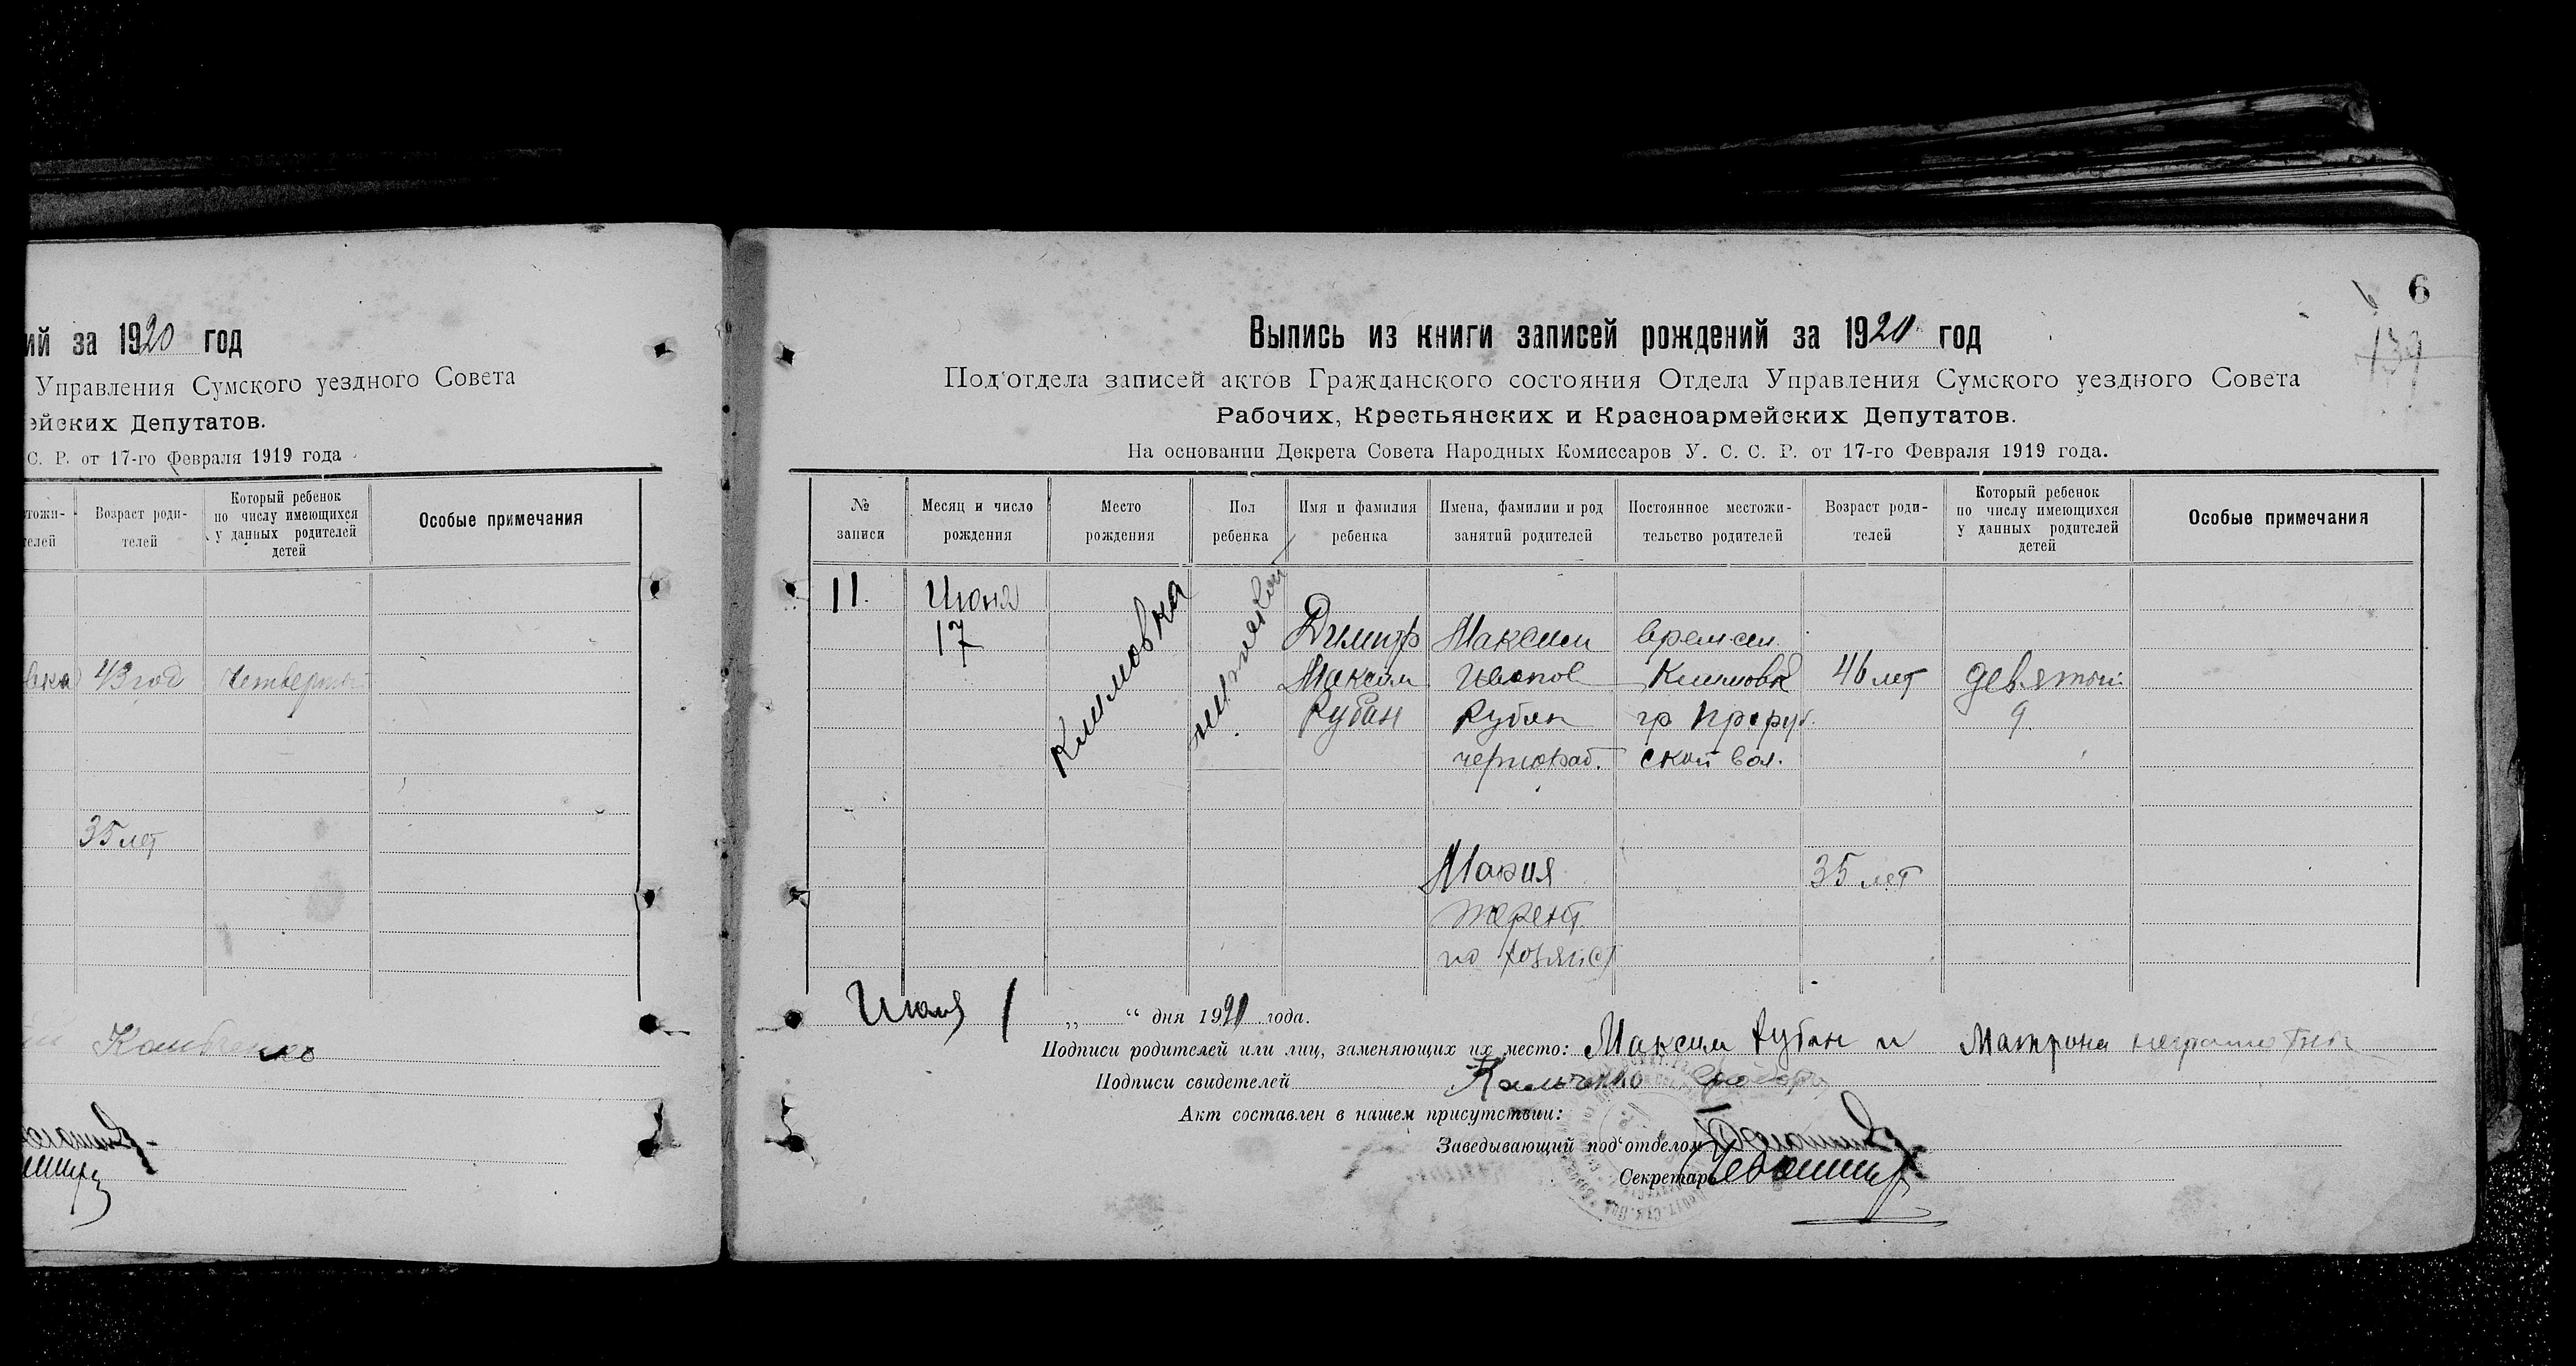 ий за 1920 год
Управления Сумского уездного Совета
ейских Депутатов.
С. Р. от 17-го Февраля 1919 года
тожи-
телей
Возраст роди-
телей
Который ребенок
по числу имеющихся
у данных родителей
детей
Особые примечания
вка 43 год Четвертый
35 лет
6
139
Выпись из книги записей рождений за 1920 год
Под'отдела записей актов Гражданского состояния Отдела Управления Сумского уездного Совета
Рабочих, Крестьянских и Красноармейских Депутатов.
На основании Декрета Совета Народных Комиссаров У. С. С. Р. от 17-го Февраля 1919 года.
№
записи
Месяц и число
рождения
Место
рождения
Пол
ребенка
Имя и фамилия
ребенка
Имена, фамилии и род
занятий родителей
Постоянное местожи-
тельство родителей
Возраст роди-
телей
Который ребенок
по числу имеющихся
у данных родителей
детей
Особые примечания
11.
Июня
17
Климовка
мужской
Димитр
Максим
Рубан
Максим
Иванов
Рубан
чернораб.
времен.
Климовка
гр
ской вол.
46 лет
девятой
9
Мария
Терент.
по хозяйст
35 лет
Июля 1 „ “ дня 1920 года.
Подписи родителей или лиц, заменяющих их место: Максим Рубан и Матрона неграмотны
Подписи свидетелей Кальченко
Акт составлен в нашем присутствии:
Заведывающий под'отделом
Секретарь